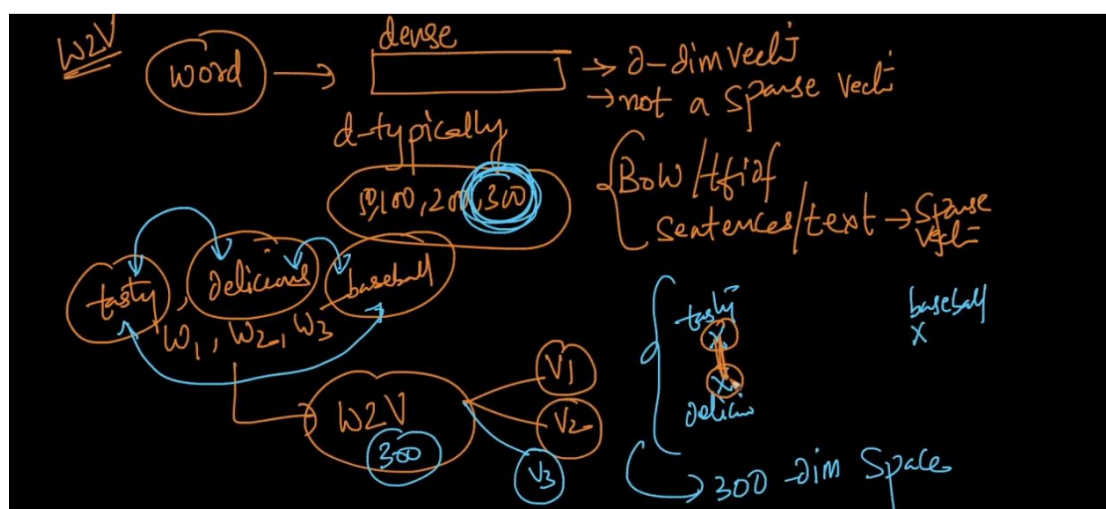 W2V
word → dense → d-dim vect
→ not a sparse vect
d-typically
50,100,200,300
BOW/tfidf
sentences/text → sparse vect
tasty, delicious, baseball
w1, w2, w3
W2V
300
V1
V2
V3
tasty
x
baseball
x
x
delicio
→ 300-dim space